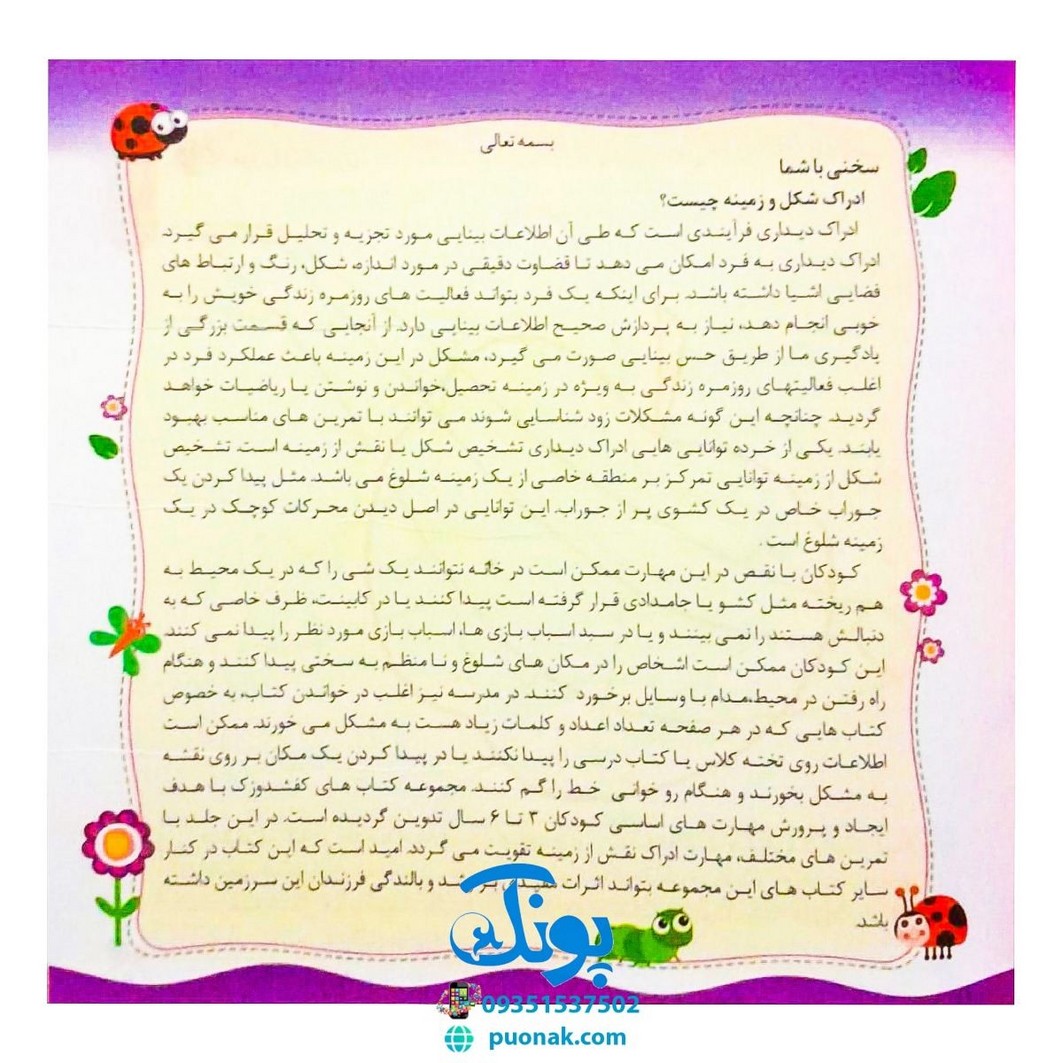 بسمه تعالی
سخنی با شما
ادراک شکل و زمینه چیست؟
ادراک دیداری فرآیندی است که طی آن اطلاعات بینایی مورد تجزیه و تحلیل قرار می گیرد.
ادراک دیداری به فرد امکان می دهد تا قضاوت دقیقی در مورد اندازه، شکل، رنگ و ارتباط های
فضایی اشیا داشته باشد. برای اینکه یک فرد بتواند فعالیت های روزمره زندگی خویش را به
خوبی انجام دهد، نیاز به پردازش صحیح اطلاعات بینایی دارد. از آنجایی که قسمت بزرگی از
یادگیری ما از طریق حس بینایی صورت می گیرد، مشکل در این زمینه باعث عملکرد فرد در
اغلب فعالیتهای روزمره زندگی به ویژه در زمینه تحصیل،خواندن و نوشتن یا ریاضیات خواهد
گردید. چنانچه این گونه مشکلات زود شناسایی شوند می توانند با تمرین های مناسب بهبود
یابند. یکی از خرده توانایی هایی ادراک دیداری تشخیص شکل یا نقش از زمینه است. تشخیص
شکل از زمینه توانایی تمرکز بر منطقه خاصی از یک زمینه شلوغ می باشد. مثل پیدا کردن یک
جوراب خاص در یک کشوی پر از جوراب. این توانایی در اصل دیدن محرکات کوچک در یک
زمینه شلوغ است .
کودکان با نقص در این مهارت ممکن است در خانه نتوانند یک شی را که در یک محیط به
هم ریخته مثل کشو یا جامدادی قرار گرفته است پیدا کنند یا در کابینت، ظرف خاصی که به
دنبالش هستند را نمی بینند و یا در سبد اسباب بازی ها، اسباب بازی مورد نظر را پیدا نمی کنند.
این کودکان ممکن است اشخاص را در مکان های شلوغ و نا منظم به سختی پیدا کنند و هنگام
راه رفتن در محیط،مدام با وسایل برخورد کنند. در مدرسه نیز اغلب در خواندن کتاب، به خصوص
کتاب هایی که در هر صفحه تعداد اعداد و کلمات زیاد هست به مشکل می خورند. ممکن است
اطلاعات روی تخته کلاس یا کتاب درسی را پیدا نکنند یا در پیدا کردن یک مکان بر روی نقشه
به مشکل بخورند و هنگام رو خوانی خط را گم کنند. مجموعه کتاب های کفشدوزک با هدف
ایجاد و پرورش مهارت های اساسی کودکان ۳ تا ۶ سال تدوین گردیده است. در این جلد با
تمرین های مختلف، مهارت ادراک نقش از زمینه تقویت می گردد. امید است که این کتاب در کنار
سایر کتاب های این مجموعه بتواند اثرات مفیدی بر رشد و بالندگی فرزندان این سرزمین داشته
باشد.
پونک
09351537502
puonak.com